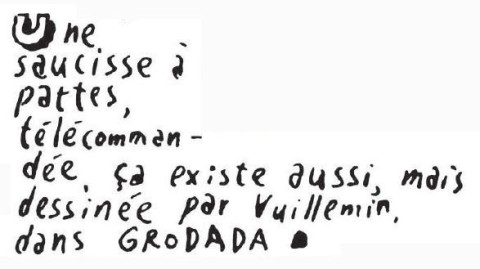 Une
saucisse à
pattes,
télécomman-
dée, ça existe aussi, mais
dessinée par Vuillemin,
dans GRODADA